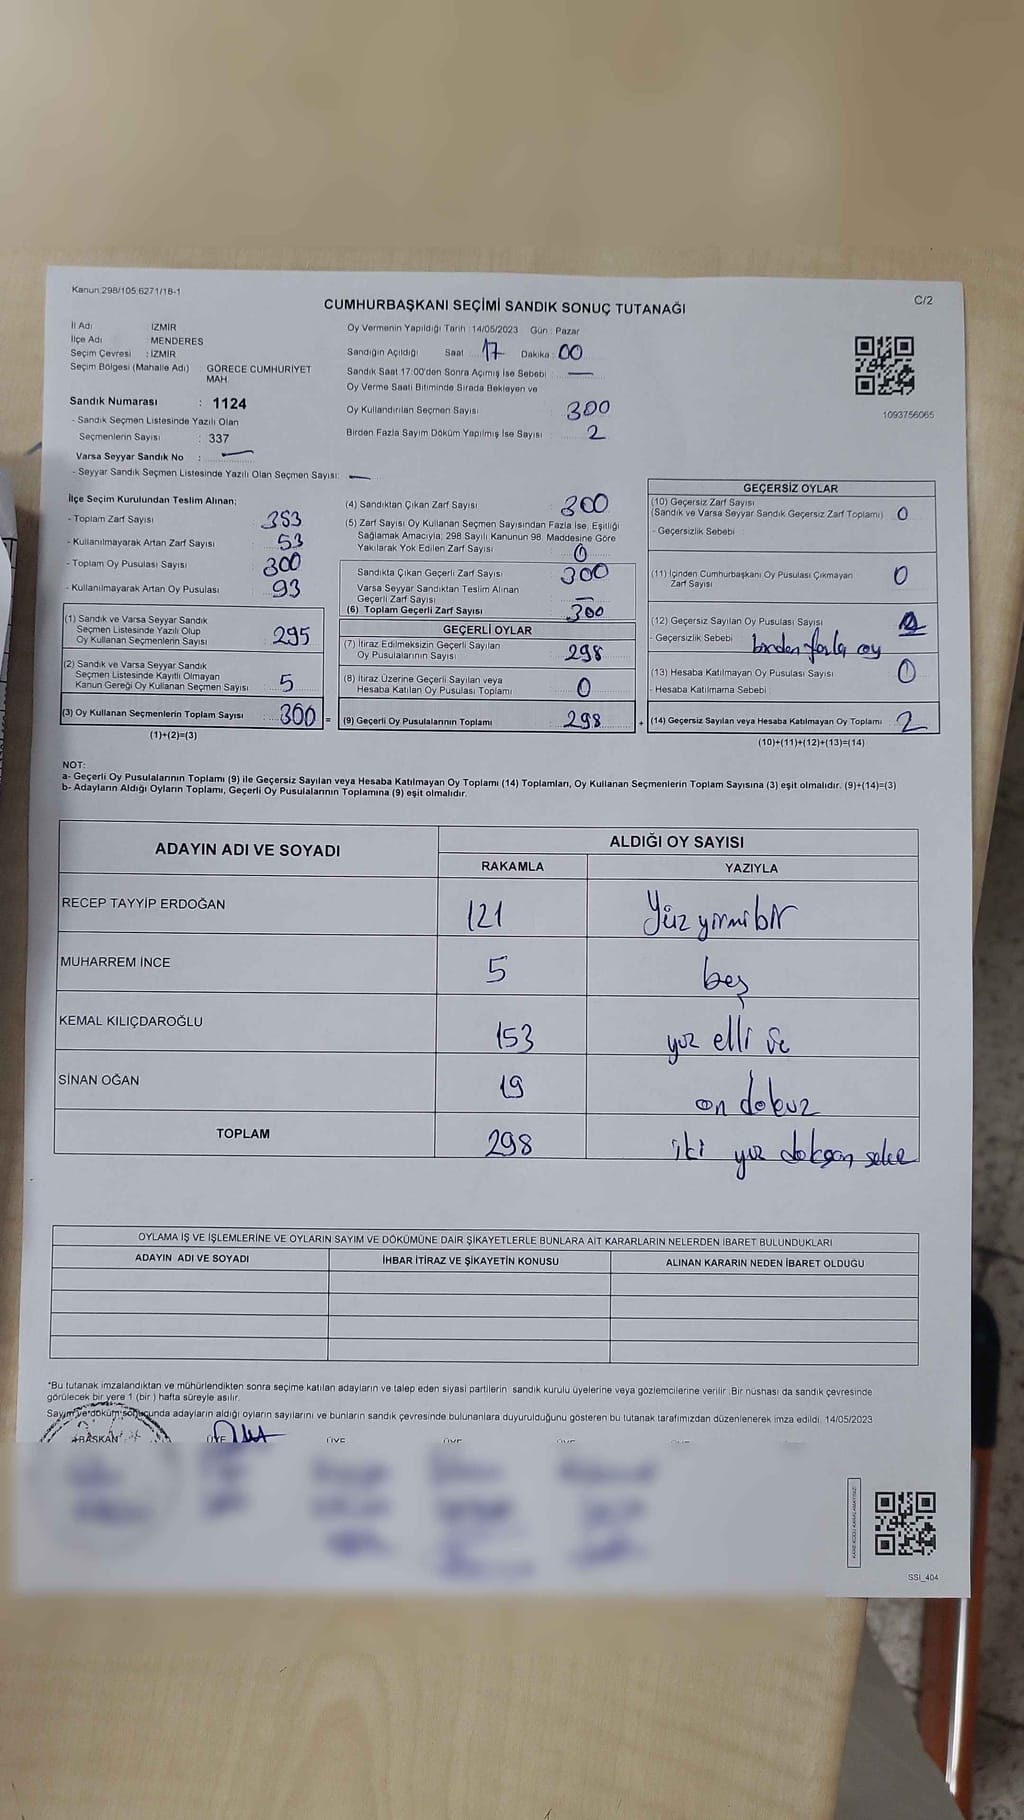 Kanun:298/105;6271/18-1
C/2
CUMHURBAŞKANI SEÇİMİ SANDIK SONUÇ TUTANAĞI
İl Adı : İZMİR
İlçe Adı : MENDERES
Seçim Çevresi : İZMİR
Seçim Bölgesi (Mahalle Adı) : GÖRECE CUMHURİYET MAH.
Sandık Numarası : 1124
- Sandık Seçmen Listesinde Yazılı Olan
Seçmenlerin Sayısı : 337
Varsa Seyyar Sandık No : —
- Seyyar Sandık Seçmen Listesinde Yazılı Olan Seçmen Sayısı: —
Oy Vermenin Yapıldığı Tarih : 14/05/2023 Gün : Pazar
Sandığın Açıldığı Saat : 17 Dakika : 00
Sandık Saat 17:00'den Sonra Açımış İse Sebebi : —
Oy Verme Saati Bitiminde Sırada Bekleyen ve
Oy Kullandırılan Seçmen Sayısı : 300
Birden Fazla Sayım Döküm Yapılmış İse Sayısı : 2
1093756065
İlçe Seçim Kurulundan Teslim Alınan;
- Toplam Zarf Sayısı 353
- Kullanılmayarak Artan Zarf Sayısı 53
- Toplam Oy Pusulası Sayısı 300
- Kullanılmayarak Artan Oy Pusulası 93
(1) Sandık ve Varsa Seyyar Sandık
Seçmen Listesinde Yazılı Olup
Oy Kullanan Seçmenlerin Sayısı 295
(2) Sandık ve Varsa Seyyar Sandık
Seçmen Listesinde Kayıtlı Olmayan
Kanun Gereği Oy Kullanan Seçmen Sayısı 5
(3) Oy Kullanan Seçmenlerin Toplam Sayısı 300 =
(1)+(2)=(3)
(4) Sandıktan Çıkan Zarf Sayısı 300
(5) Zarf Sayısı Oy Kullanan Seçmen Sayısından Fazla İse, Eşitliği
Sağlamak Amacıyla; 298 Sayılı Kanunun 98. Maddesine Göre
Yakılarak Yok Edilen Zarf Sayısı 0
Sandıkta Çıkan Geçerli Zarf Sayısı 300
Varsa Seyyar Sandıktan Teslim Alınan
Geçerli Zarf Sayısı —
(6) Toplam Geçerli Zarf Sayısı 300
GEÇERLİ OYLAR
(7) İtiraz Edilmeksizin Geçerli Sayılan
Oy Pusulalarının Sayısı 298
(8) İtiraz Üzerine Geçerli Sayılan veya
Hesaba Katılan Oy Pusulası Toplamı 0
(9) Geçerli Oy Pusulalarının Toplamı 298 +
GEÇERSİZ OYLAR
(10) Geçersiz Zarf Sayısı
(Sandık ve Varsa Seyyar Sandık Geçersiz Zarf Toplamı) 0
- Geçersizlik Sebebi
(11) İçinden Cumhurbaşkanı Oy Pusulası Çıkmayan
Zarf Sayısı 0
(12) Geçersiz Sayılan Oy Pusulası Sayısı
- Geçersizlik Sebebi birden fazla oy
(13) Hesaba Katılmayan Oy Pusulası Sayısı 0
- Hesaba Katılmama Sebebi
(14) Geçersiz Sayılan veya Hesaba Katılmayan Oy Toplamı 2
(10)+(11)+(12)+(13)=(14)
NOT:
a- Geçerli Oy Pusulalarının Toplamı (9) ile Geçersiz Sayılan veya Hesaba Katılmayan Oy Toplamı (14) Toplamları, Oy Kullanan Seçmenlerin Toplam Sayısına (3) eşit olmalıdır. (9)+(14)=(3)
b- Adayların Aldığı Oyların Toplamı, Geçerli Oy Pusulalarının Toplamına (9) eşit olmalıdır.
ADAYIN ADI VE SOYADI ALDIĞI OY SAYISI
RAKAMLA YAZIYLA
RECEP TAYYİP ERDOĞAN 121 Yüz yirmi bir
MUHARREM İNCE 5 beş
KEMAL KILIÇDAROĞLU 153 yüz elli üç
SİNAN OĞAN 19 on dokuz
TOPLAM 298 iki yüz doksan sekiz
OYLAMA İŞ VE İŞLEMLERİNE VE OYLARIN SAYIM VE DÖKÜMÜNE DAİR ŞİKAYETLERLE BUNLARA AİT KARARLARIN NELERDEN İBARET BULUNDUKLARI
ADAYIN ADI VE SOYADI İHBAR İTİRAZ VE ŞİKAYETİN KONUSU ALINAN KARARIN NEDEN İBARET OLDUĞU
*Bu tutanak imzalandıktan ve mühürlendikten sonra seçime katılan adayların ve talep eden siyasi partilerin sandık kurulu üyelerine veya gözlemcilerine verilir. Bir nüshası da sandık çevresinde
görülecek bir yere 1 (bir ) hafta süreyle asılır.
Sayım ve döküm sonucunda adayların aldığı oyların sayılarını ve bunların sandık çevresinde bulunanlara duyurulduğunu gösteren bu tutanak tarafımızdan düzenlenerek imza edildi. 14/05/2023
BAŞKAN ÜYE ÜYE ÜYE
SSI_404